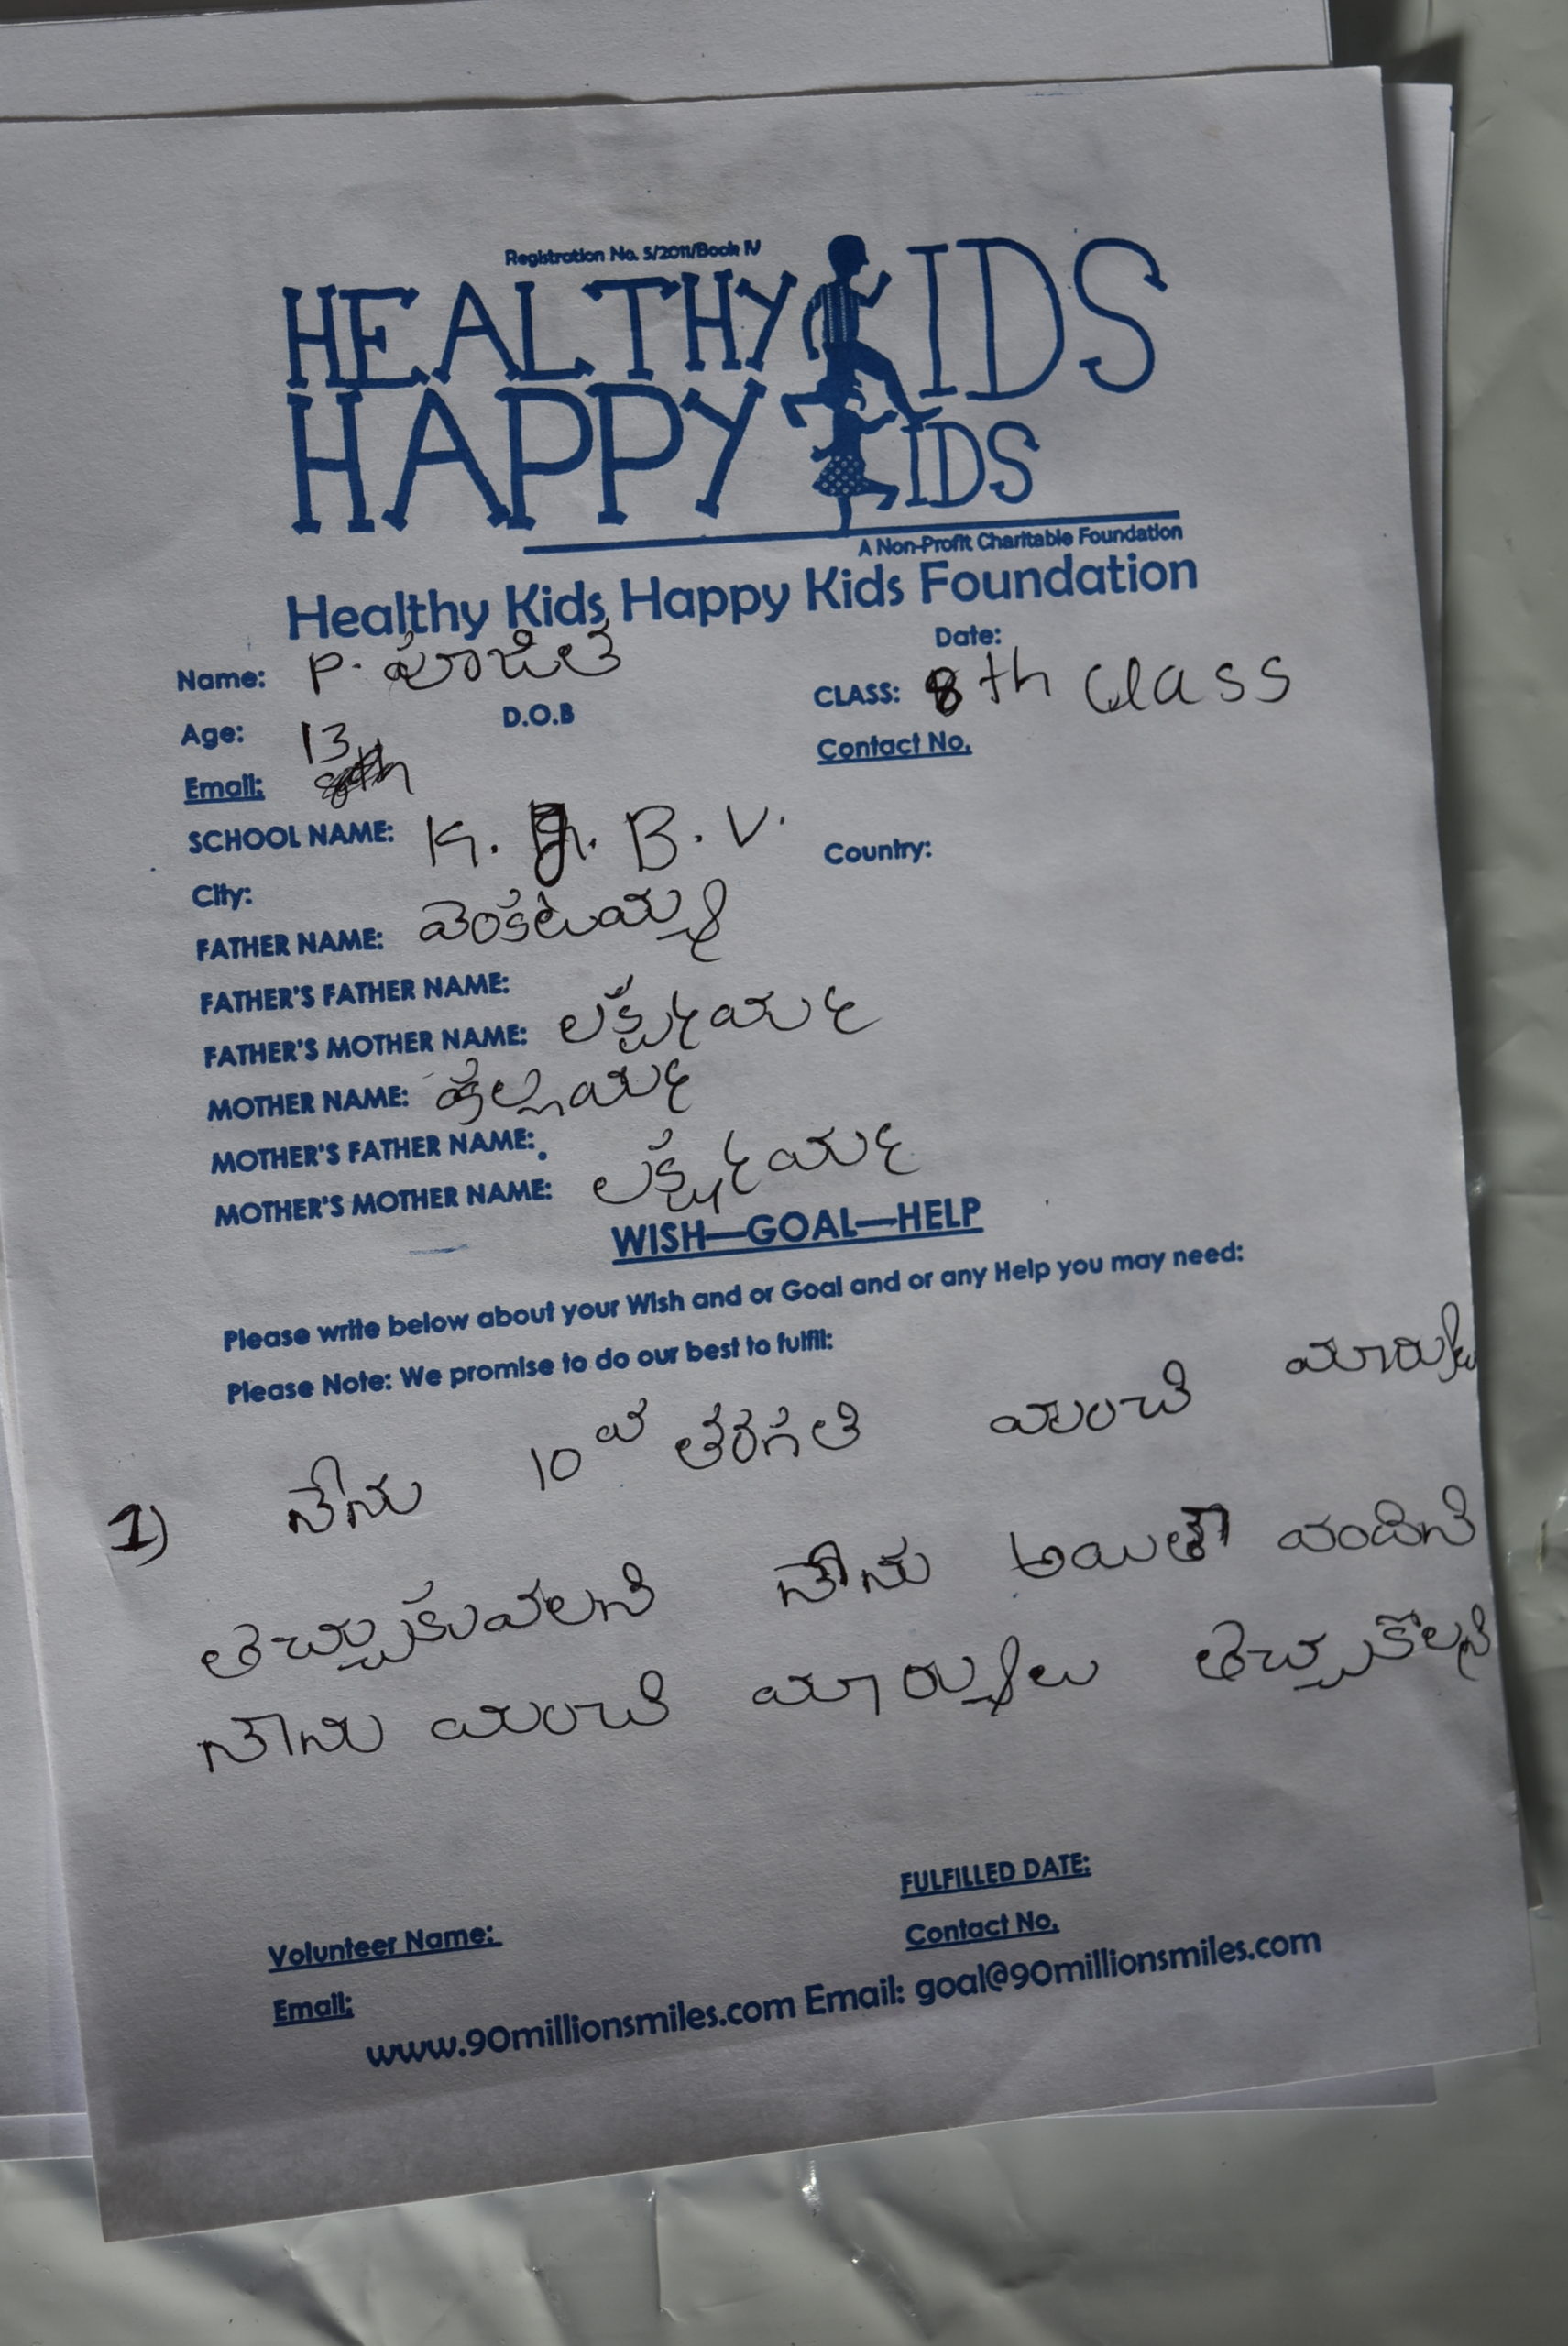 Registration No. 5/2011/Book IV
HEALTHY KIDS
HAPPY KIDS
A Non-Profit Charitable Foundation
Healthy Kids Happy Kids Foundation
Date:
Name: P. పూజిత
CLASS: 8th class
Age: 13 D.O.B
Contact No.
Email:
SCHOOL NAME: K. G. B. V.
City: Country:
FATHER NAME: వెంకటయ్య
FATHER'S FATHER NAME:
FATHER'S MOTHER NAME: లక్ష్మమ్మ
MOTHER NAME:
MOTHER'S FATHER NAME:
MOTHER'S MOTHER NAME: లక్ష్మమ్మ
WISH—GOAL—HELP
Please write below about your Wish and or Goal and or any Help you may need:
Please Note: We promise to do our best to fulfil:
1) నేను 10వ తరగతి మంచి మార్కులు
తెచ్చుకువలని నాను అయితే
నాను మంచి మార్కులు తెచ్చుకొలని
FULFILLED DATE:
Volunteer Name: Contact No.
Email:
www.90millionsmiles.com Email: goal@90millionsmiles.com